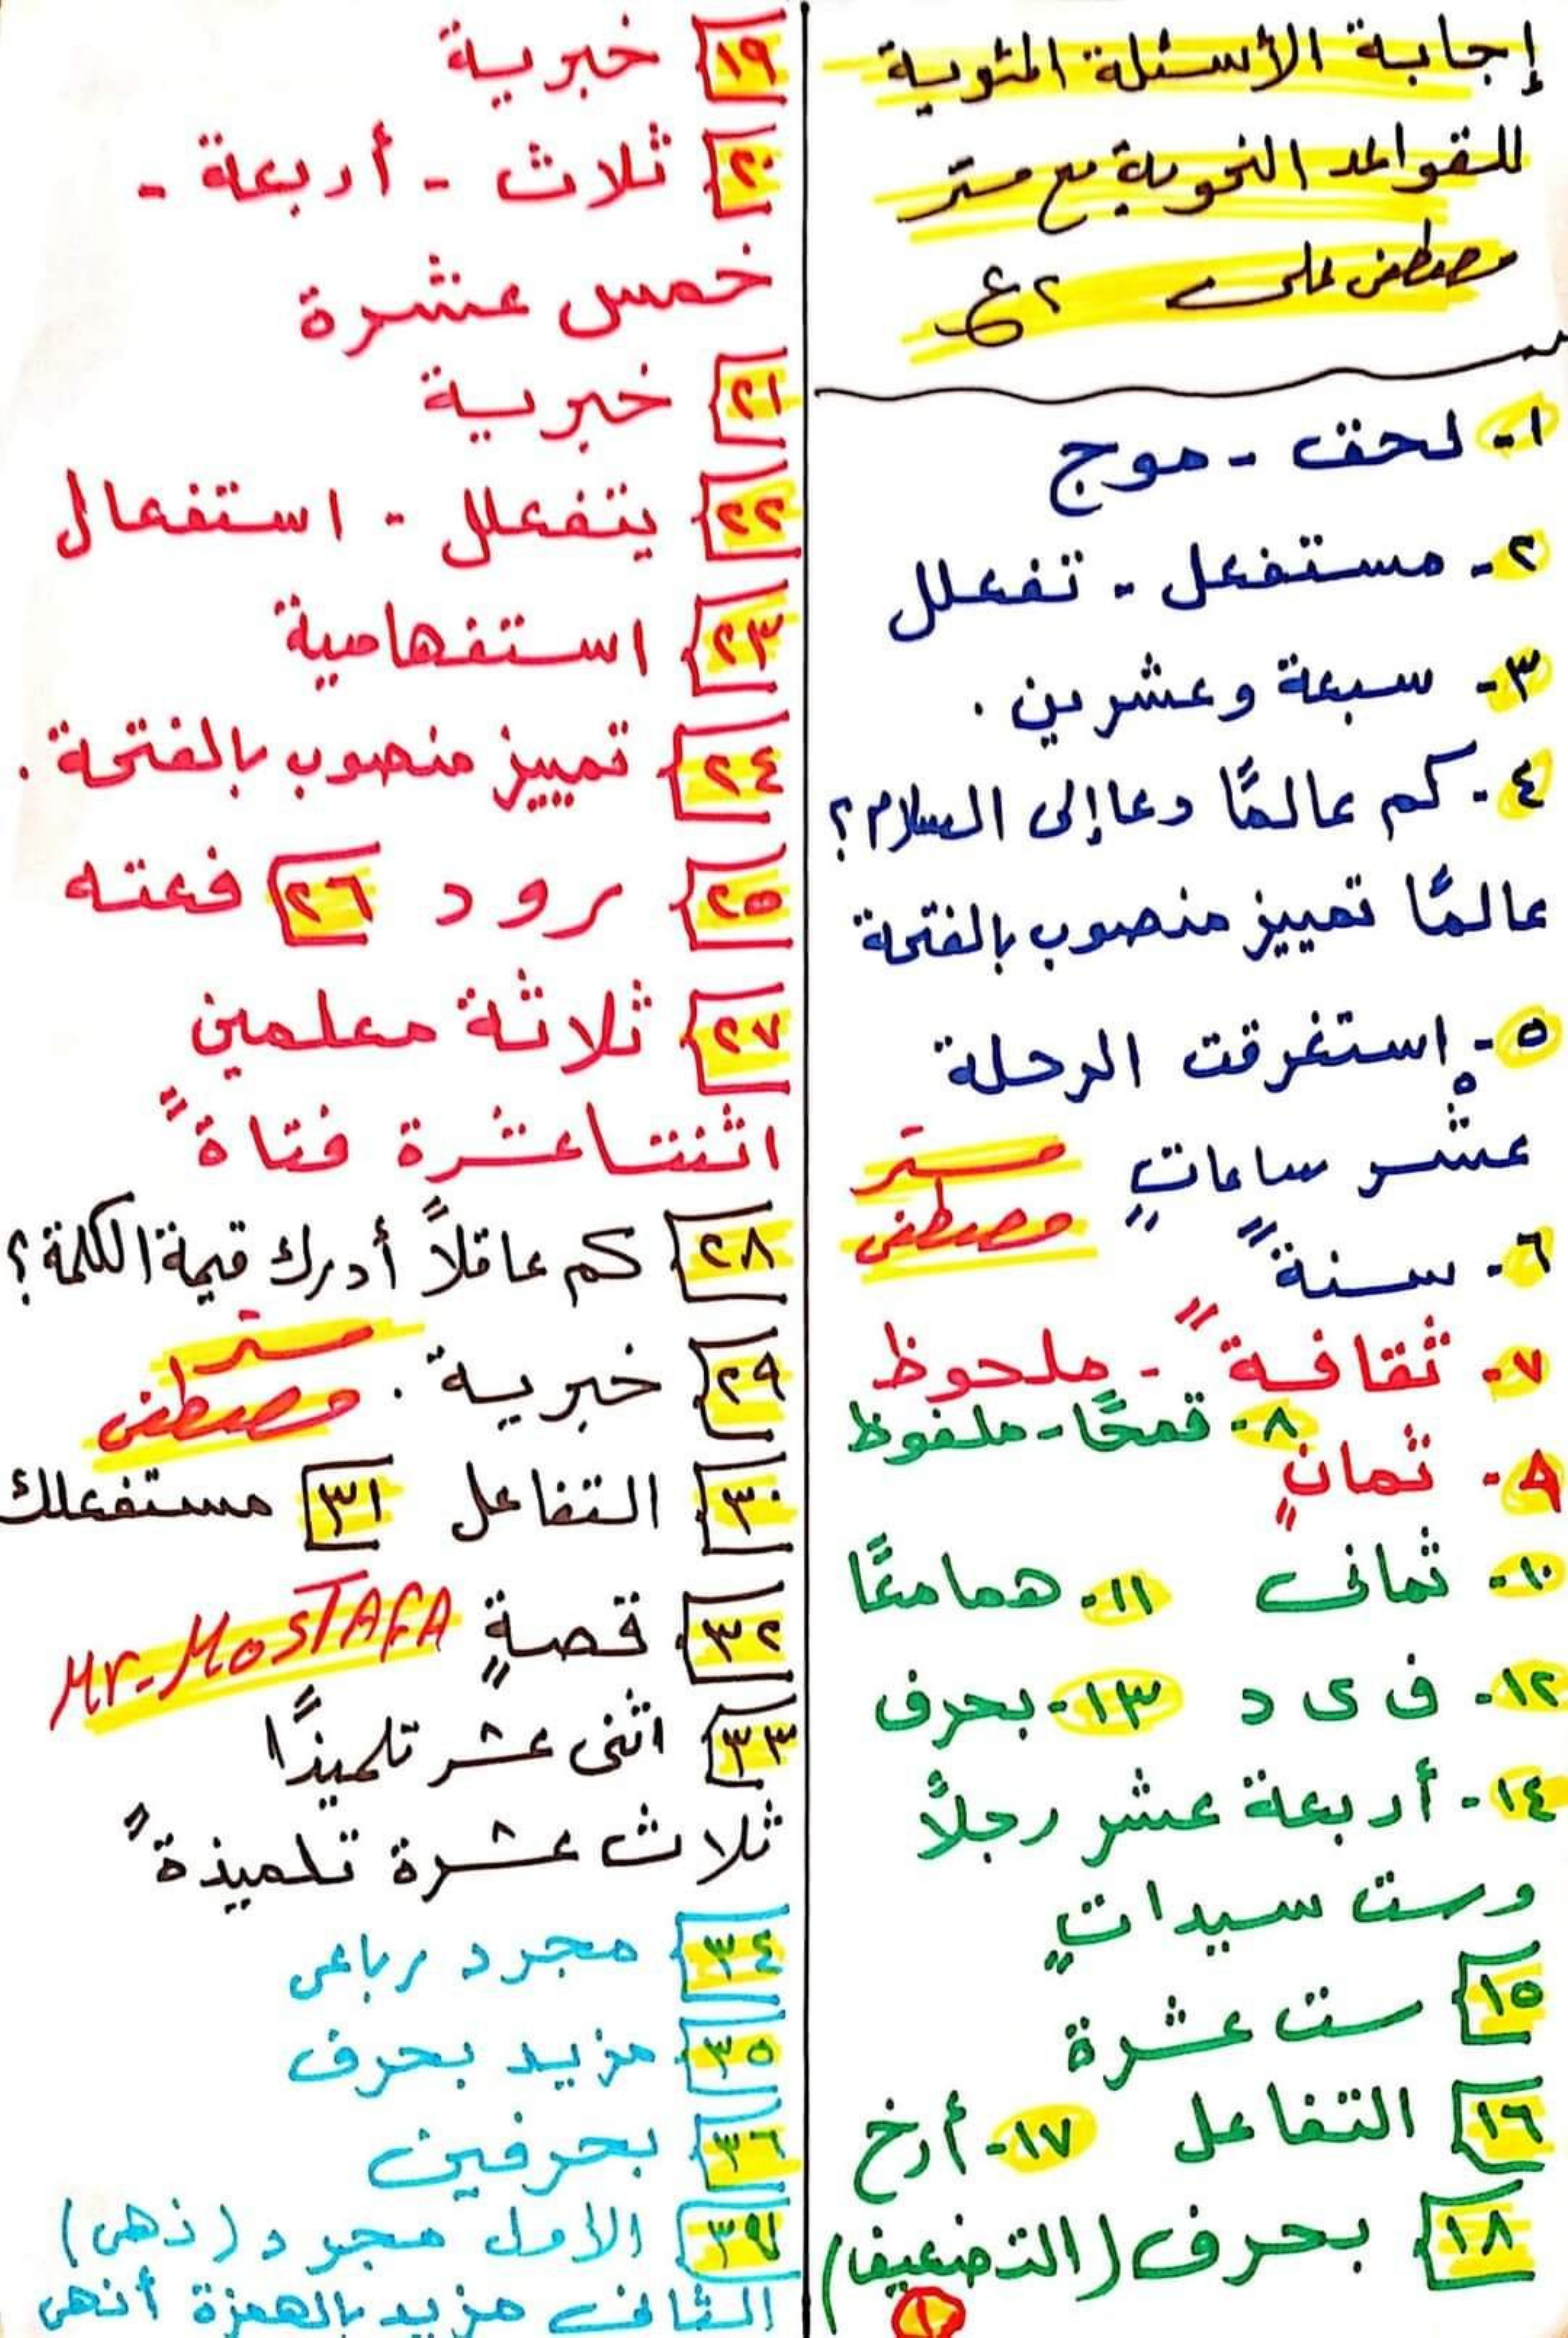 إجابة الأسئلة المئوية
للقواعد النحوية مع مستر
مصطفى على ٢ ع
١- لحق - موج
٢- مستفعل - تفعلل
٣- سبعة وعشرين .
٤- كم عالمًا دعا إلى السلام؟
عالمًا تمييز منصوب بالفتحة
٥- إستغرقت الرحلة
عشْر ساعاتٍ
مستر
مصطفى
٦- سنةً
٧- ثقافةً - ملحوظ
٨- قمحًا - ملفوظ
٩- ثمانٍ
١٠- ثمانى ١١- همامعًا
١٢- ف ى د ١٣- بحرف
١٤- أربعة عشر رجلاً
وست سيداتٍ
١٥ ست عشرة
١٦ التفاعل ١٧- أرخ
١٨ بحرف (التضعيف)
١
١٩ خبرية
٢٠ ثلاث - أربعة -
خمس عشرة
٢١ خبرية
٢٢ يتفعلل - استفعال
٢٣ استفهامية
٢٤ تمييز منصوب بالفتحة .
٢٥ رود ٢٦ فعته
٢٧ ثلاثة معلمين
اثنتا عشرة فتاةً
٢٨ كم عاقلاً أدرك قيمة الكلمة؟
٢٩ خبرية .
مستر
مصطفى
٣٠ التفاعل ٣١ مستفعلك
٣٢ قصةٍ
Mr-MOSTAFA
٣٣ اثنى عشر تلميذًا
ثلاث عشرة تلميذةً
٣٤ مجرد رباعى
٣٥ مزيد بحرف
٣٦ بحرفين
٣٩ الأول مجرد (ذهى)
الثانى مزيد بالهمزة أنهى